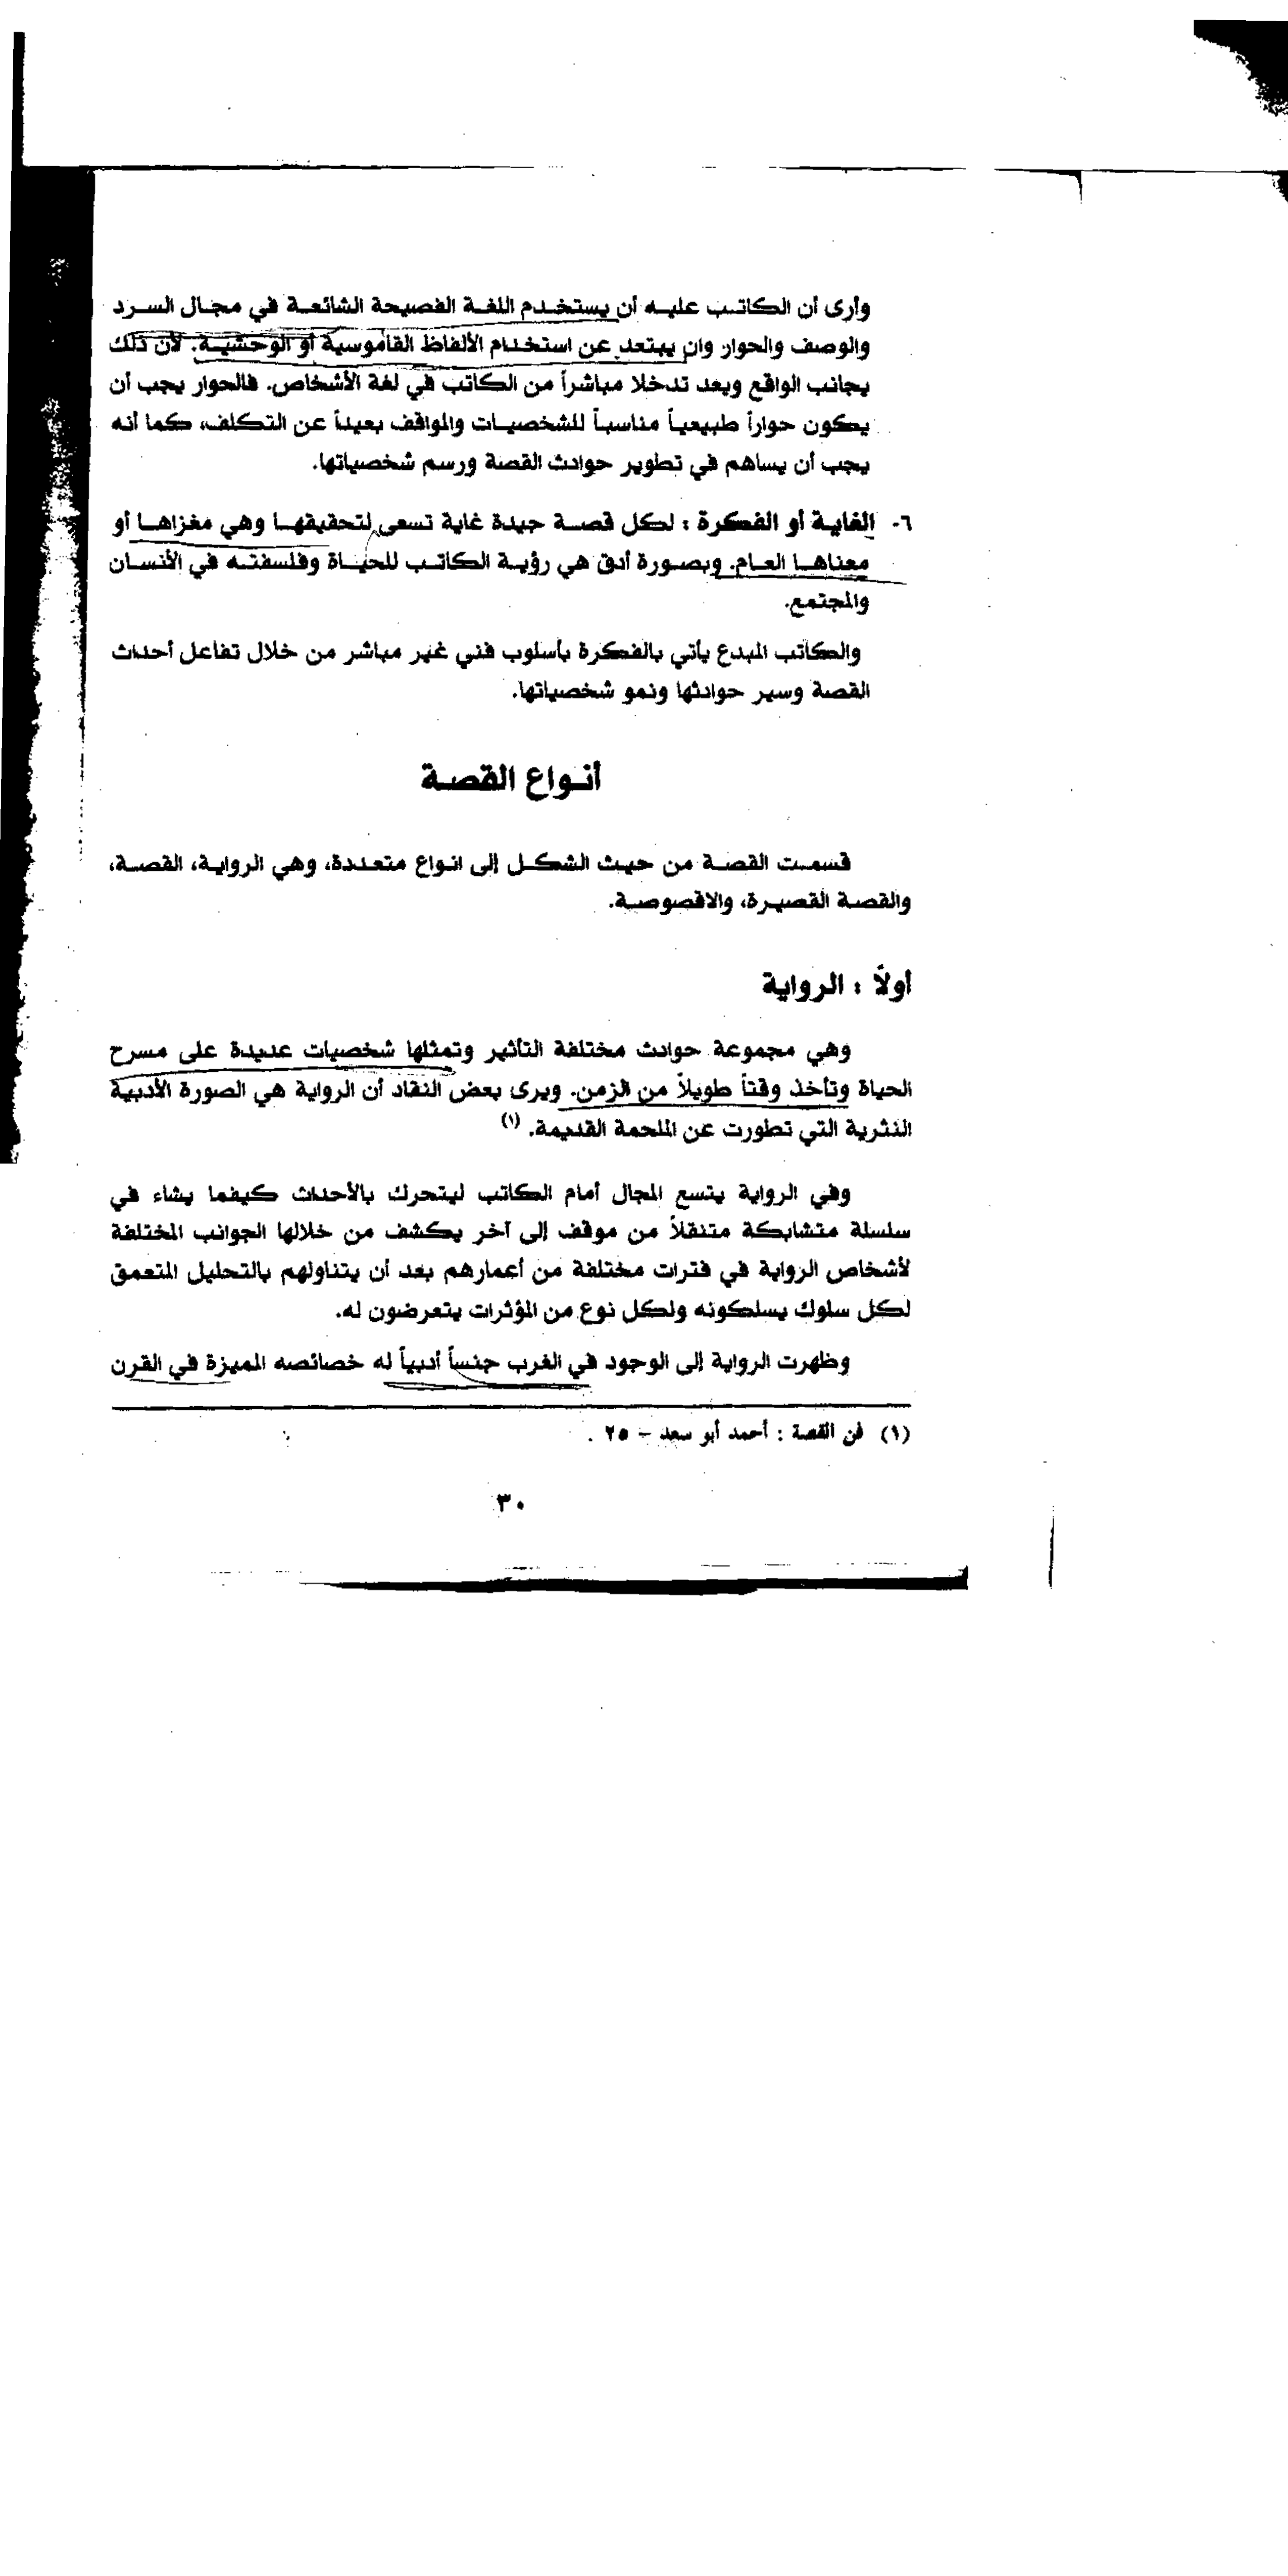 وأرى أن الكاتب عليه أن يستخدم اللغة الفصيحة الشائعة في مجال السرد
والوصف والحوار وان يبتعد عن استخدام الألفاظ القاموسية أو الوحشية. لأن ذلك
يجانب الواقع ويعد تدخلا مباشراً من الكاتب في لغة الأشخاص. فالحوار يجب أن
يكون حواراً طبيعياً مناسباً للشخصيات والمواقف بعيداً عن التكلف، كما أنه
يجب أن يساهم في تطوير حوادث القصة ورسم شخصياتها.
٦- الغاية أو الفكرة : لكل قصة جيدة غاية تسعى لتحقيقها وهي مغزاها أو
معناها العام. وبصورة أدق هي رؤية الكاتب للحياة وفلسفته في الأنسان
والمجتمع.
والكاتب المبدع يأتي بالفكرة بأسلوب فني غير مباشر من خلال تفاعل أحداث
القصة وسير حوادثها ونمو شخصياتها.
أنواع القصة
قسمت القصة من حيث الشكل إلى انواع متعددة، وهي الرواية، القصة،
والقصة القصيرة، والاقصوصة.
أولاً : الرواية
وهي مجموعة حوادث مختلفة التأثير وتمثلها شخصيات عديدة على مسرح
الحياة وتأخذ وقتاً طويلاً من الزمن. ويرى بعض النقاد أن الرواية هي الصورة الأدبية
النثرية التي تطورت عن الملحمة القديمة. (١)
وفي الرواية يتسع المجال أمام الكاتب ليتحرك بالأحداث كيفما يشاء في
سلسلة متشابكة متنقلاً من موقف إلى آخر يكشف من خلالها الجوانب المختلفة
لأشخاص الرواية في فترات مختلفة من أعمارهم بعد أن يتناولهم بالتحليل المتعمق
لكل سلوك يسلكونه ولكل نوع من المؤثرات يتعرضون له.
وظهرت الرواية إلى الوجود في الغرب جنساً أدبياً له خصائصه المميزة في القرن
(١) فن القصة : أحمد أبو سعد - ٢٥ .
٣٠